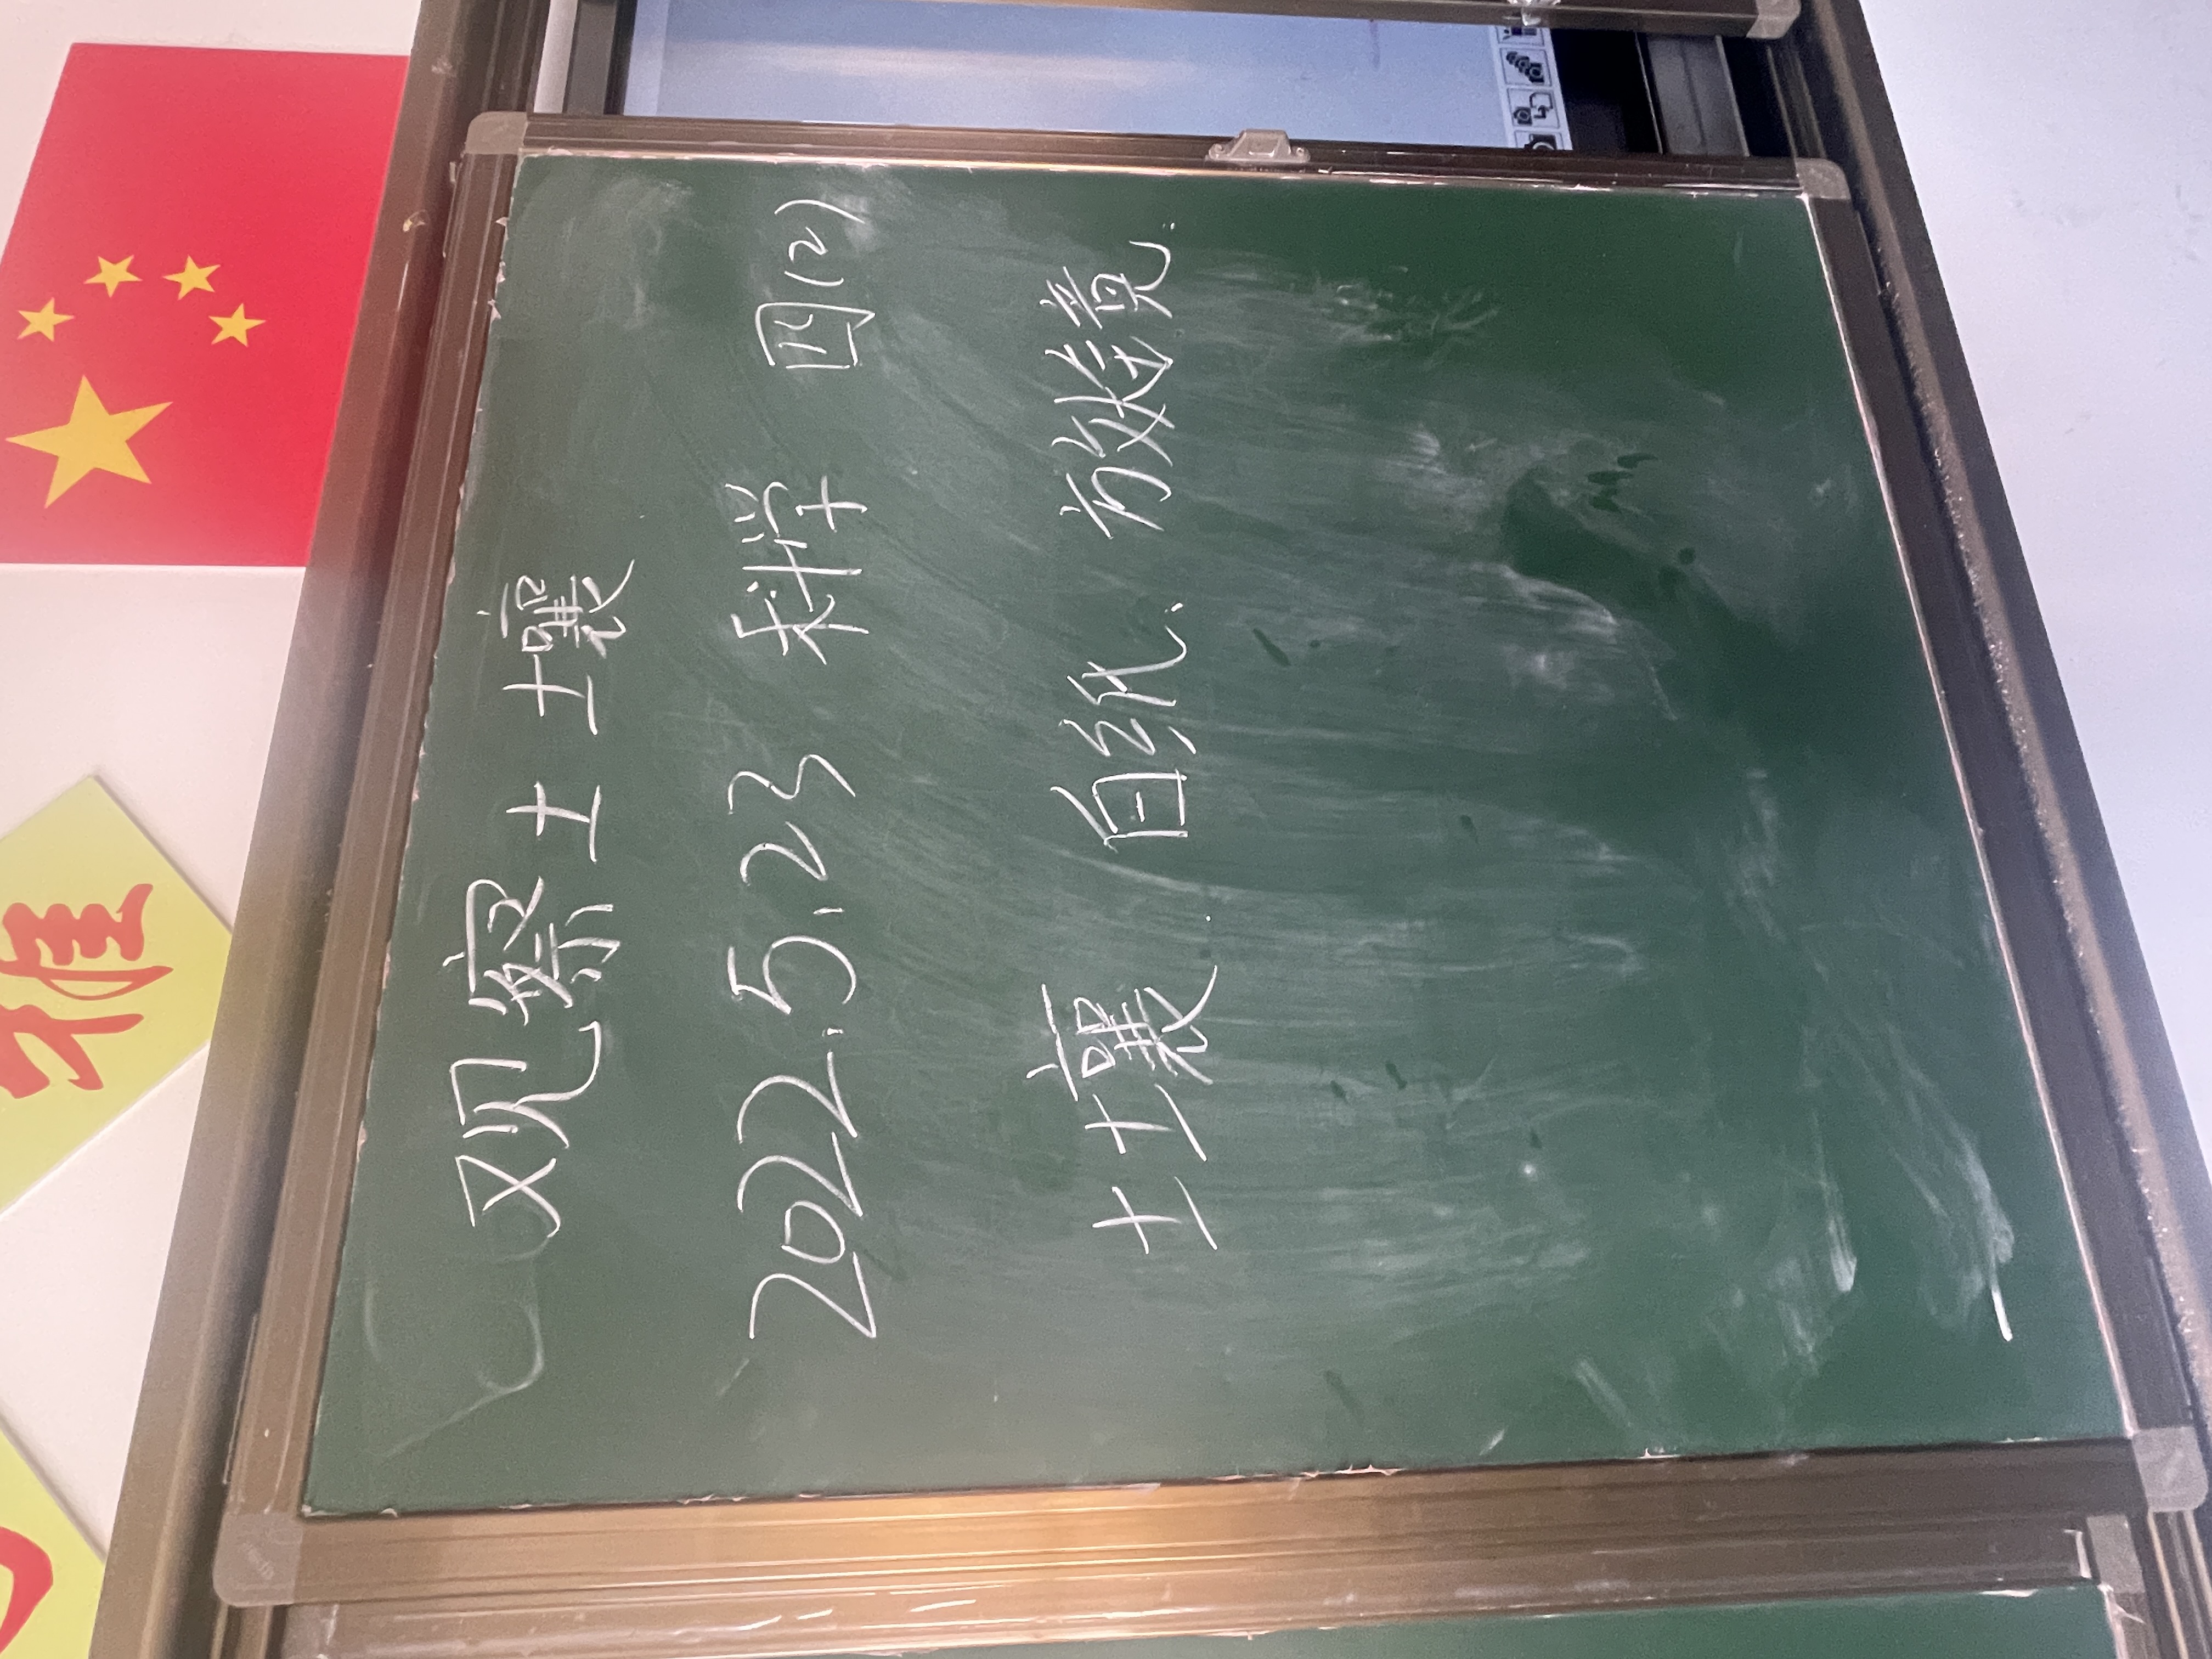 观察土壤
2022.5.23 科学 四(2)
土壤. 白纸. 放大镜.
雅